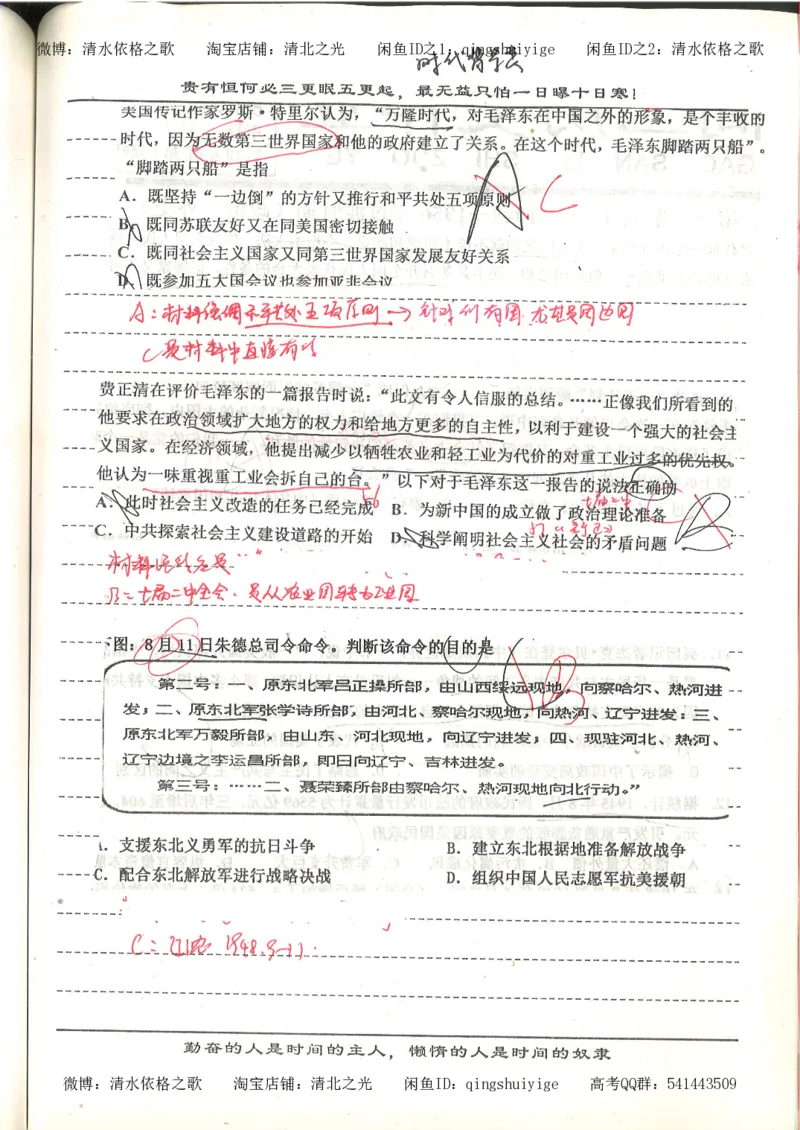 微博：清水依格之歌 淘宝店铺：清北之光 闲鱼ID之1：qingshuiyige 闲鱼ID之2：清水依格之歌
时代背景
贵有恒何必三更眠五更起，最无益只怕一日曝十日寒！
美国传记作家罗斯·特里尔认为，“万隆时代，对毛泽东在中国之外的形象，是个丰收的
时代，因为无数第三世界国家和他的政府建立了关系。在这个时代，毛泽东脚踏两只船”。
“脚踏两只船”是指
A．既坚持“一边倒”的方针又推行和平共处五项原则
B．既同苏联友好又在同美国密切接触
C．既同社会主义国家又同第三世界国家发展友好关系
D．既参加五大国会议也参加亚非会议
A C
A：材料强调 五项原则→针对所有国
C是材料中直接有的
费正清在评价毛泽东的一篇报告时说：“此文有令人信服的总结。……正像我们所看到的
他要求在政治领域扩大地方的权力和给地方更多的自主性，以利于建设一个强大的社会主
义国家。在经济领域，他提出减少以牺牲农业和轻工业为代价的对重工业过多的优先权。
他认为一味重视重工业会拆自己的台。”以下对于毛泽东这一报告的说法正确的
A．此时社会主义改造的任务已经完成 B．为新中国的成立做了政治理论准备
C．中共探索社会主义建设道路的开始 D．科学阐明社会主义社会的矛盾问题
56
B
B：七届二中全会，是从农业国转为工业国
图：8月11日朱德总司令命令。判断该命令的目的是
B
第二号：一、原东北军吕正操所部，由山西绥远现地，向察哈尔、热河进
发；二、原东北军张学诗所部，由河北、察哈尔现地，向热河、辽宁进发；三、
原东北军万毅所部，由山东、河北现地，向辽宁进发；四、现驻河北、热河、
辽宁边境之李运昌所部，即日向辽宁、吉林进发。
第三号：……二、聂荣臻所部由察哈尔、热河现地向北行动。”
支援东北义勇军的抗日斗争 B．建立东北根据地准备解放战争
C．配合东北解放军进行战略决战 D．组织中国人民志愿军抗美援朝
C：辽沈 1948.9—11.
勤奋的人是时间的主人，懒惰的人是时间的奴隶
微博：清水依格之歌 淘宝店铺：清北之光 闲鱼ID：qingshuiyige 高考QQ群：541443509